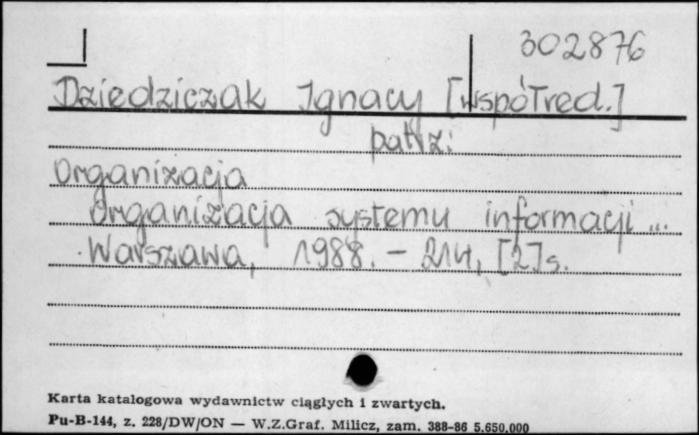 302876
Dziedziczak Ignacy [współred.]
patrz:
Organizacja
Organizacja systemu informacji ...
Warszawa, 1988. – 214, [2]s.
Karta katalogowa wydawnictw ciągłych i zwartych.
Pu-B-144, z. 228/DW/ON — W.Z.Graf. Milicz, zam. 388-86 5.650.000